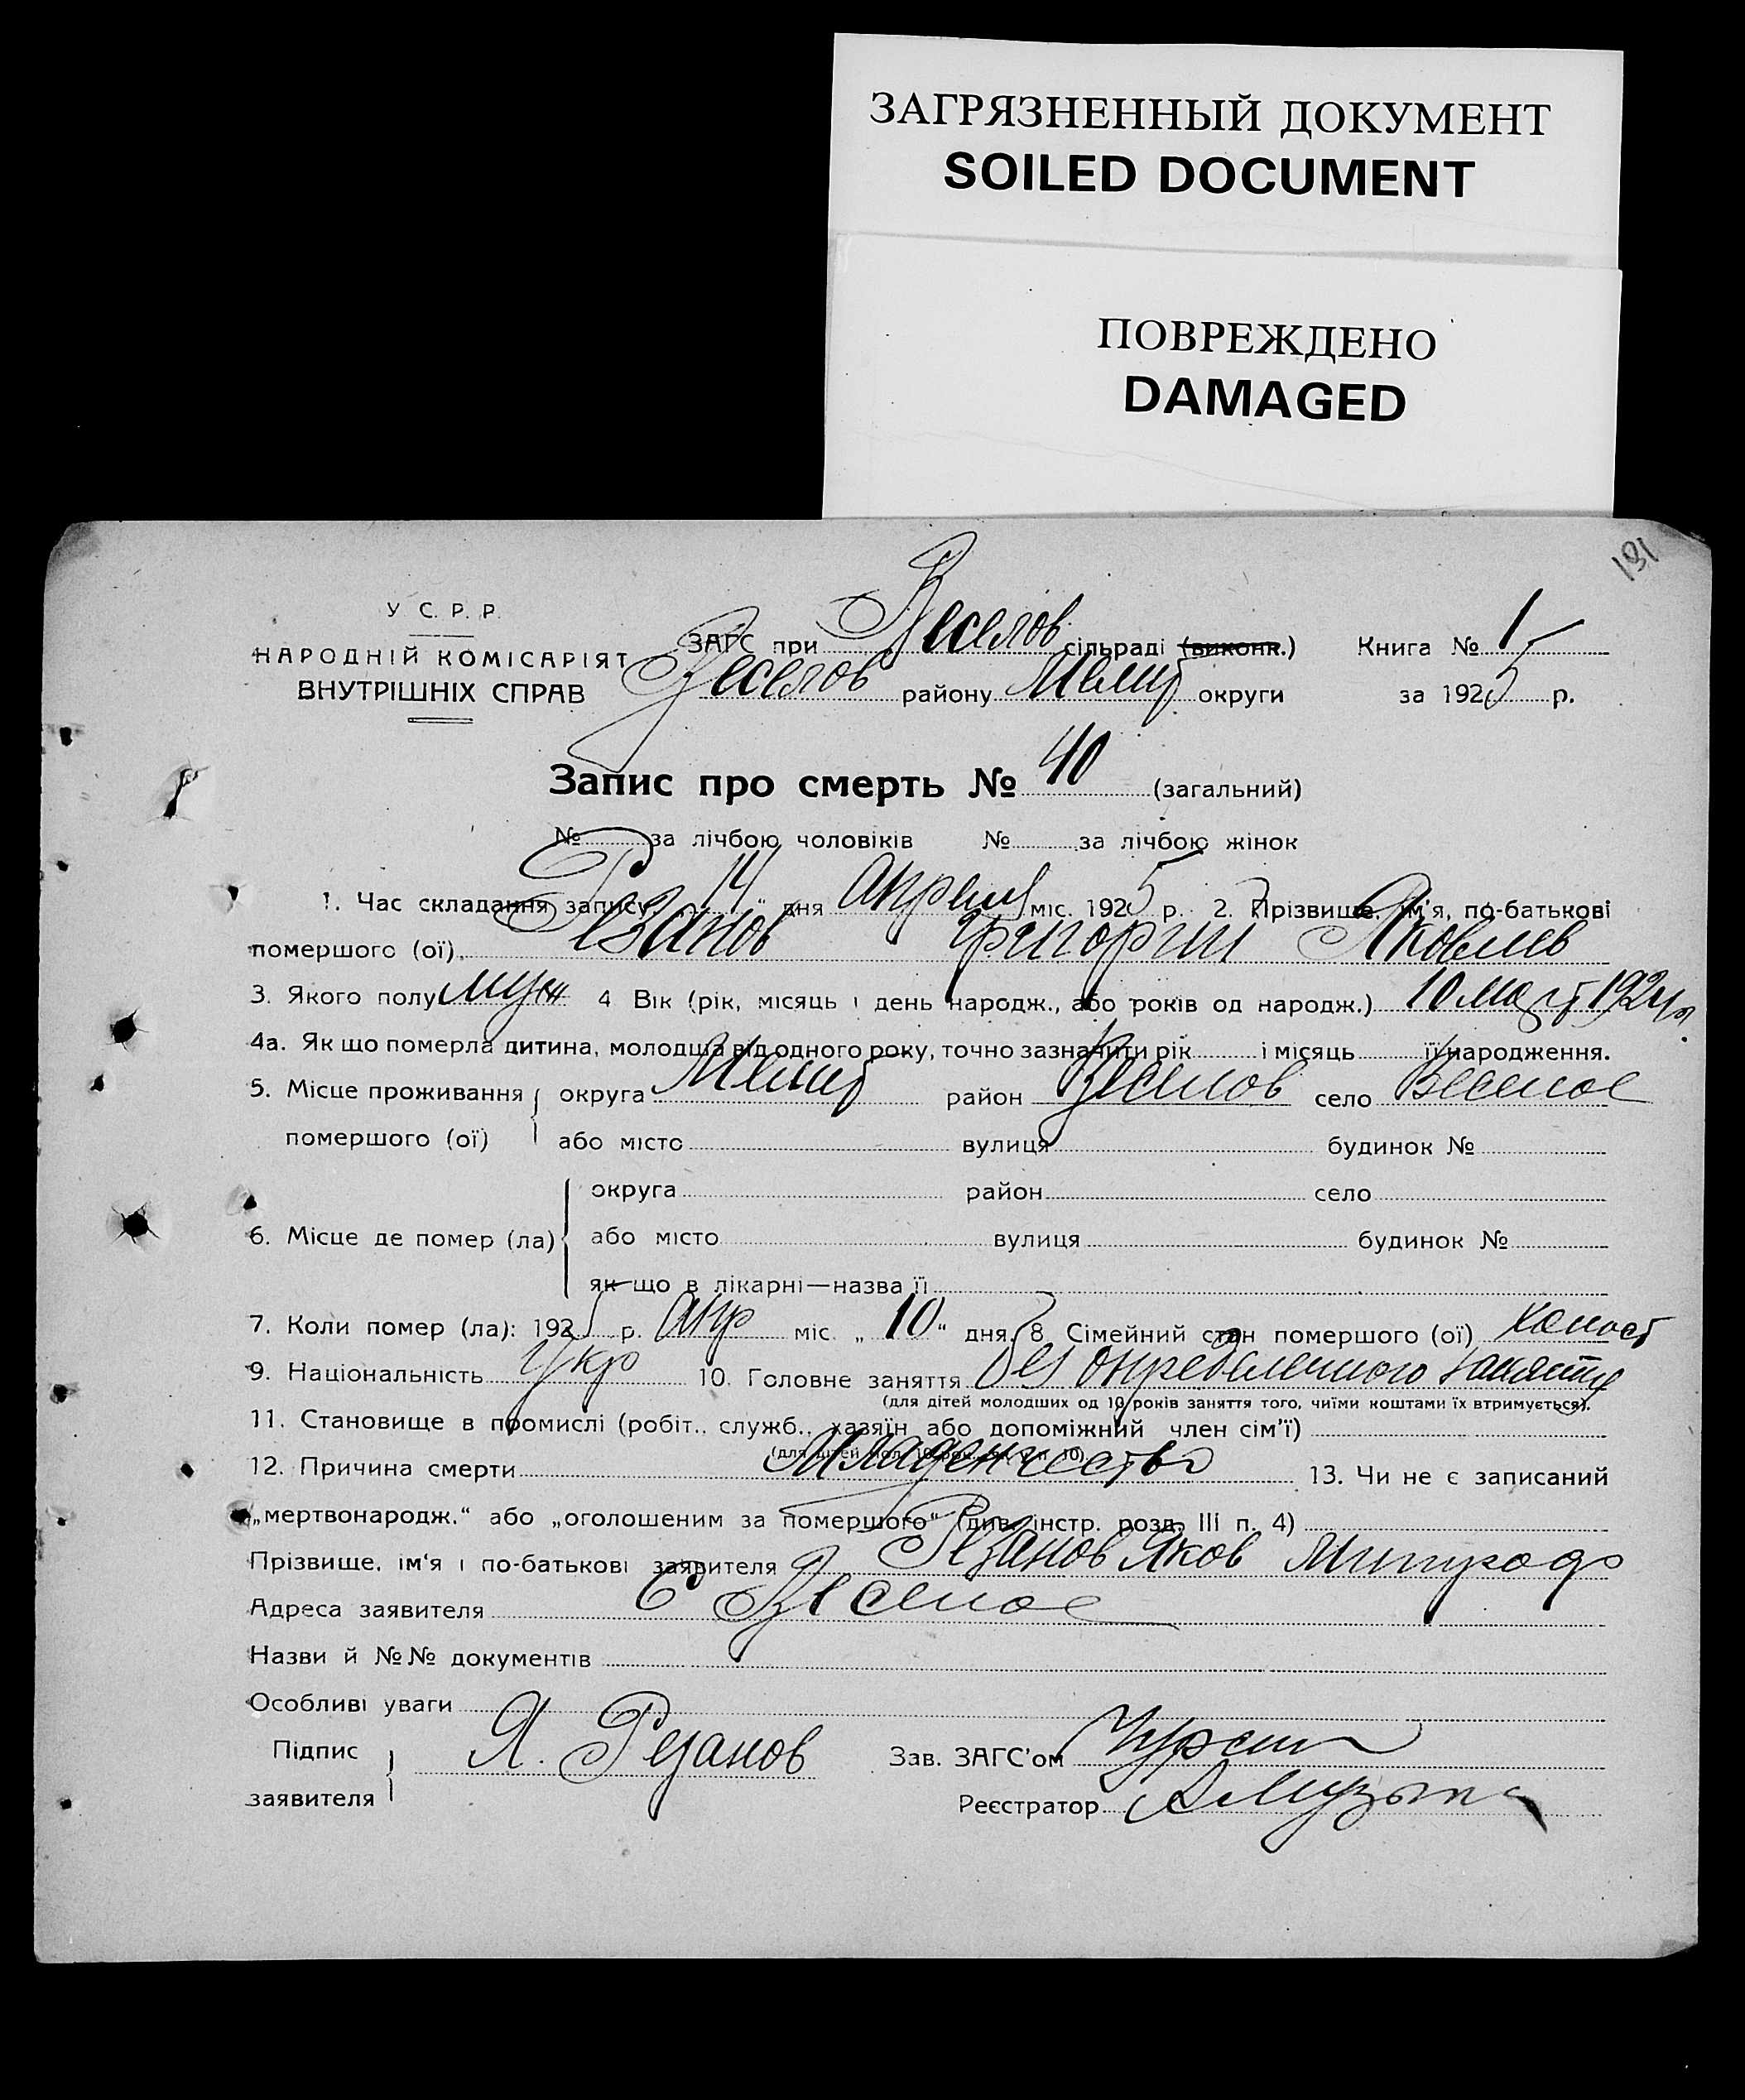 ЗАГРЯЗНЕННЫЙ ДОКУМЕНТ
SOILED DOCUMENT
ПОВРЕЖДЕНО
DAMAGED
191
У С. Р. Р.
НАРОДНІЙ КОМІСАРІЯТ
ВНУТРІШНІХ СПРАВ
ЗАГС при Веселов сільраді (виконк.) Книга № 1
Веселов району Мелит округи за 1925 р.
Запис про смерть № 40 (загальний)
№ за лічбою чоловіків № за лічбою жінок
1. Час складання запису „ 14 " дня апреля міс. 1925 р. 2. Прізвище, ім'я, по-батькові
помершого (ої). Резанов Григорий Яковлев
3. Якого полу муж 4 Вік (рік, місяць і день народж., або років од народж.) 10 март 1924 г.
4а. Як що померла дитина, молодша від одного року, точно зазначити рік і місяць її народження.
5. Місце проживання помершого (ої) округа Мелит район Веселов село Веселое
або місто вулиця будинок №
6. Місце де помер (ла) округа район село
або місто вулиця будинок №
як що в лікарні—назва її
7. Коли помер (ла): 1925 р. апр міс. „ 10 " дня. 8. Сімейний стан помершого (ої) холост
9. Національність Укр 10. Головне заняття без определенного занятия
(для дітей молодших од 10 років заняття того, чиїми коштами їх втримується).
11. Становище в промислі (робіт., служб., хазяїн або допоміжний член сім'ї)
12. Причина смерти Младенчество 13. Чи не є записаний
„мертвонародж." або „оголошеним за помершого" (див. інстр. розд. III п. 4)
Прізвище, ім'я і по-батькові заявителя Резанов Яков
Адреса заявителя С Веселое
Назви й №№ документів
Особливі уваги
Підпис заявителя Я. Резанов Зав. ЗАГС'ом
Реєстратор